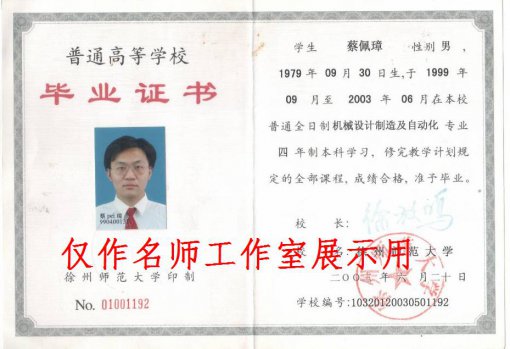 普通高等学校
毕业证书
蔡 pei 璋
仅作名师工作室展示用
徐州师范大学印制
No. 01001192
学生 蔡佩璋 性别 男，
1979 年 09 月 30 日生,于 1999 年
09 月至 2003 年 06 月在本校
普通全日制机械设计制造及自动化 专业
四 年制本科学习，修完教学计划规
定的全部课程,成绩合格,准予毕业。
校 长:
校 名:徐州师范大学
二〇〇三年六月二十日
学校编号:10320120030501192